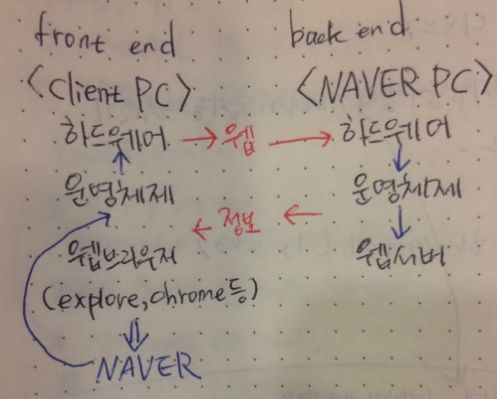 front end
<Client PC>
하드웨어 → 웹 →
운영체제
← 정보 ←
웹브라우저
(explore, chrome 등)
NAVER
back end
<NAVER PC>
하드웨어
운영체제
웹서버